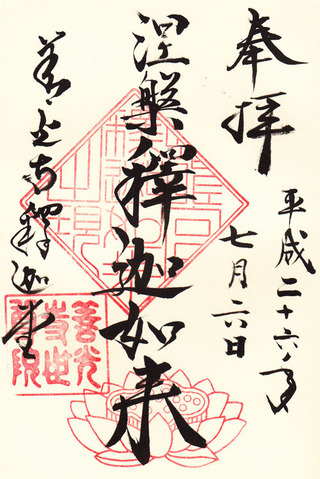 奉拝
平成二十六年
七月六日
涅槃釋迦如来
善光寺釋迦堂
善光
寺世
尊院